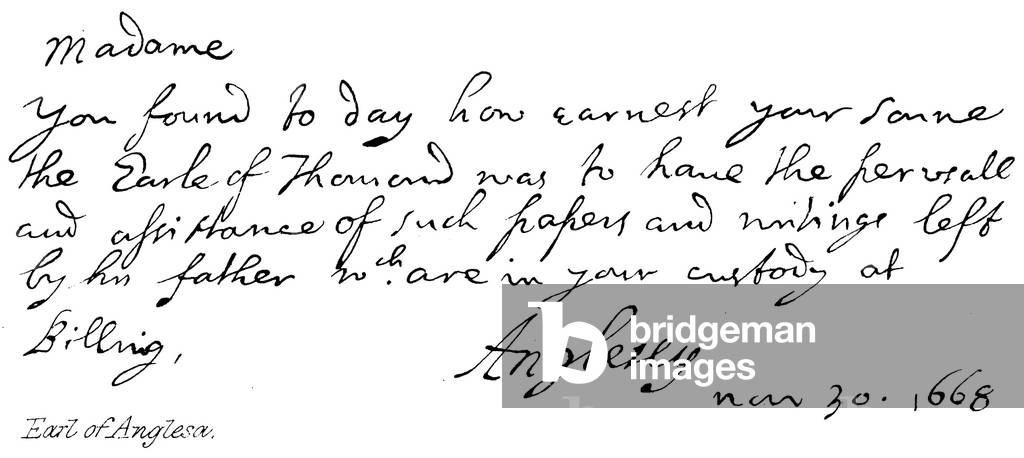 Madame
You found to day how earnest your sonne
the Earle of Thomond was to have the perusall
and assistance of such papers and writings left
by his father wch. are in your custody at
Billing,
Anglesey
nov 30. 1668
Earl of Anglesa.
b bridgeman
images